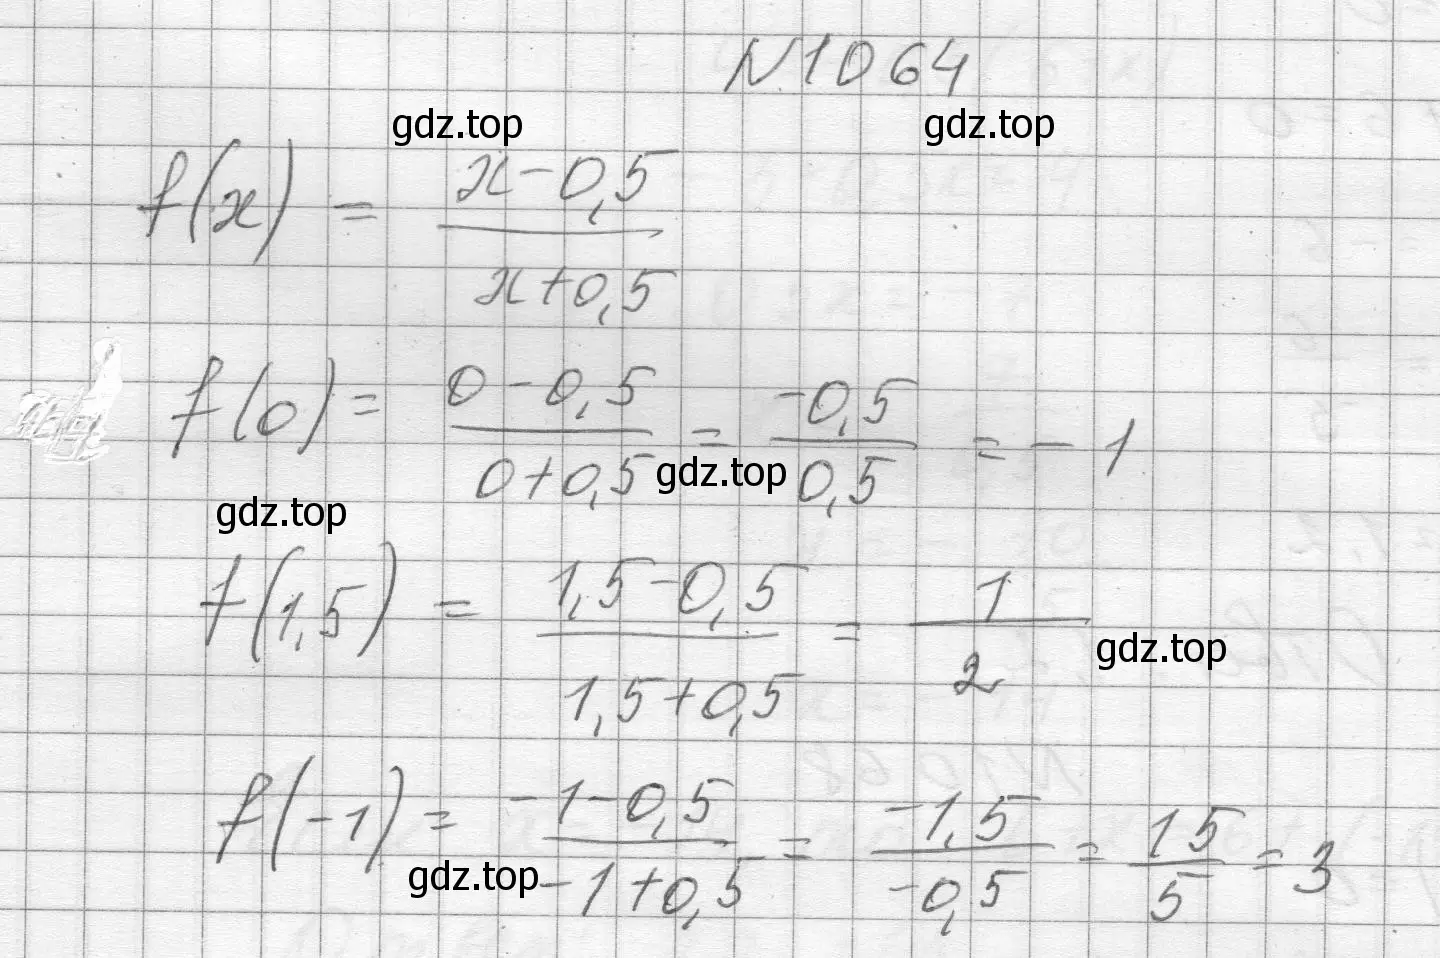 N1064
gdz.top gdz.top
f(x) = (x-0,5)/(x+0,5)
f(0) = (0-0,5)/(0+0,5) = (-0,5)/(0,5) = -1
gdz.top gdz.top
f(1,5) = (1,5-0,5)/(1,5+0,5) = 1/2
gdz.top
f(-1) = (-1-0,5)/(-1+0,5) = (-1,5)/(-0,5) = 15/5 = 3
gdz.top